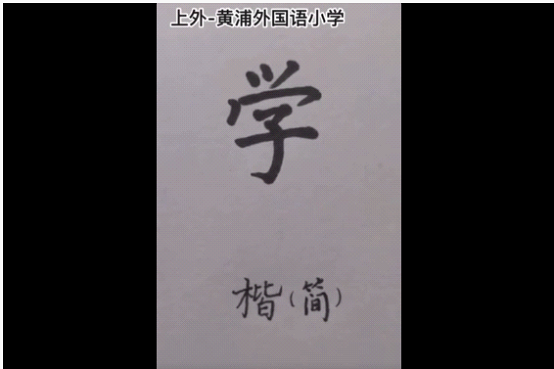 上外-黄浦外国语小学
学
楷(简)